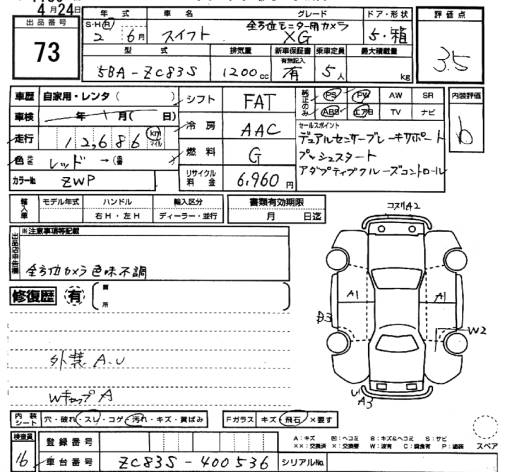 4月24日
出品番号 年式 車名 グレード ドア・形状 評価点
73
S・H 2 6月 スイフト 全方位モニター用カメラ XG 5・箱 3.5
型式 排気量 新車保証書 有無記入 乗車定員 最大積載量
5BA-ZC83S 1200cc 有 5人 kg
車歴 自家用・レンタ( ) シフト FAT 純正のみ PS PW AW SR 内装評価
車検 年 月( 日) ABS エアB TV ナビ b
走行 12,686 km マイル 冷房 AAC セールスポイント
デュアルセンサーブレーキサポート
色 レッド → 燃料 G プッシュスタート
カラーNo. ZWP リサイクル料金 6,960円 アダプティブクルーズコントロール
輸入車 モデル年式 ハンドル 輸入区分 書類有効期限
右H・左H ディーラー・並行 月 日迄
※注意事項等記載 コスリA2
全方位カメラ色味不調
修復歴 有 箇所
A1 A1
B3 W2
外装A.U
WキャップA
A3
内装シート 穴・破れ・スレ・コゲ・汚れ・キズ・黄ばみ Fガラス キズ・飛石・×要す
検査員 登録番号 A:キズ B:キズ&ヘコミ S:サビ
××:交換済 X:交換要 W:波有 C:腐食有 P:塗装 スペア
16 車台番号 ZC83S-400536 シリアルNo.